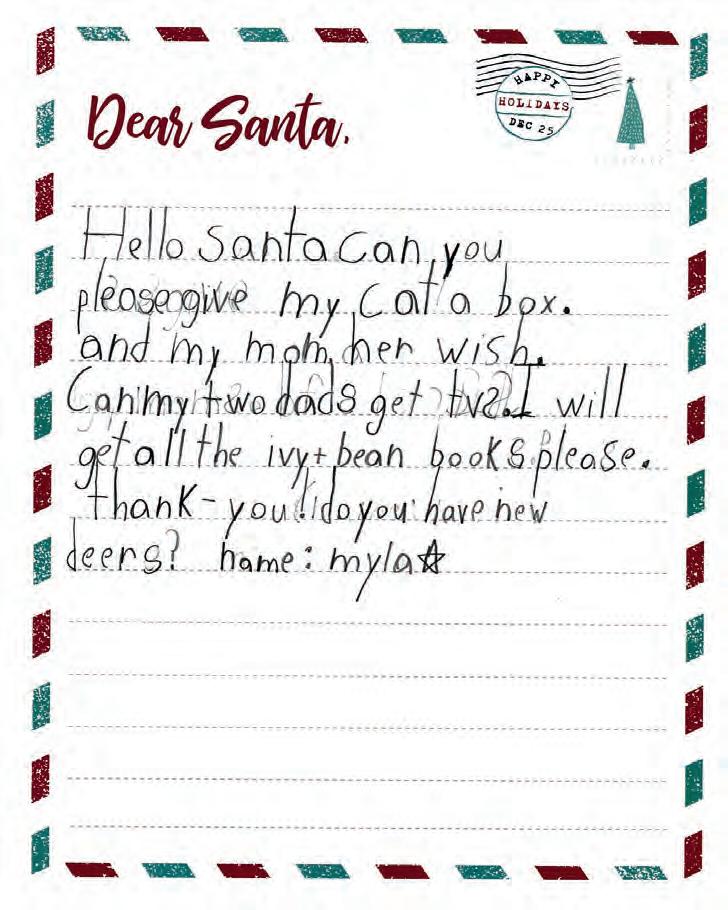 HAPPY
HOLIDAYS
DEC 25
Dear Santa,
Hello Santa Can you
please give my cat a box.
and my mom her wish.
Can my two dads get tvs. I will
get all the ivy + bean books please.
thank-you! do you have new
deers? name: myla☆